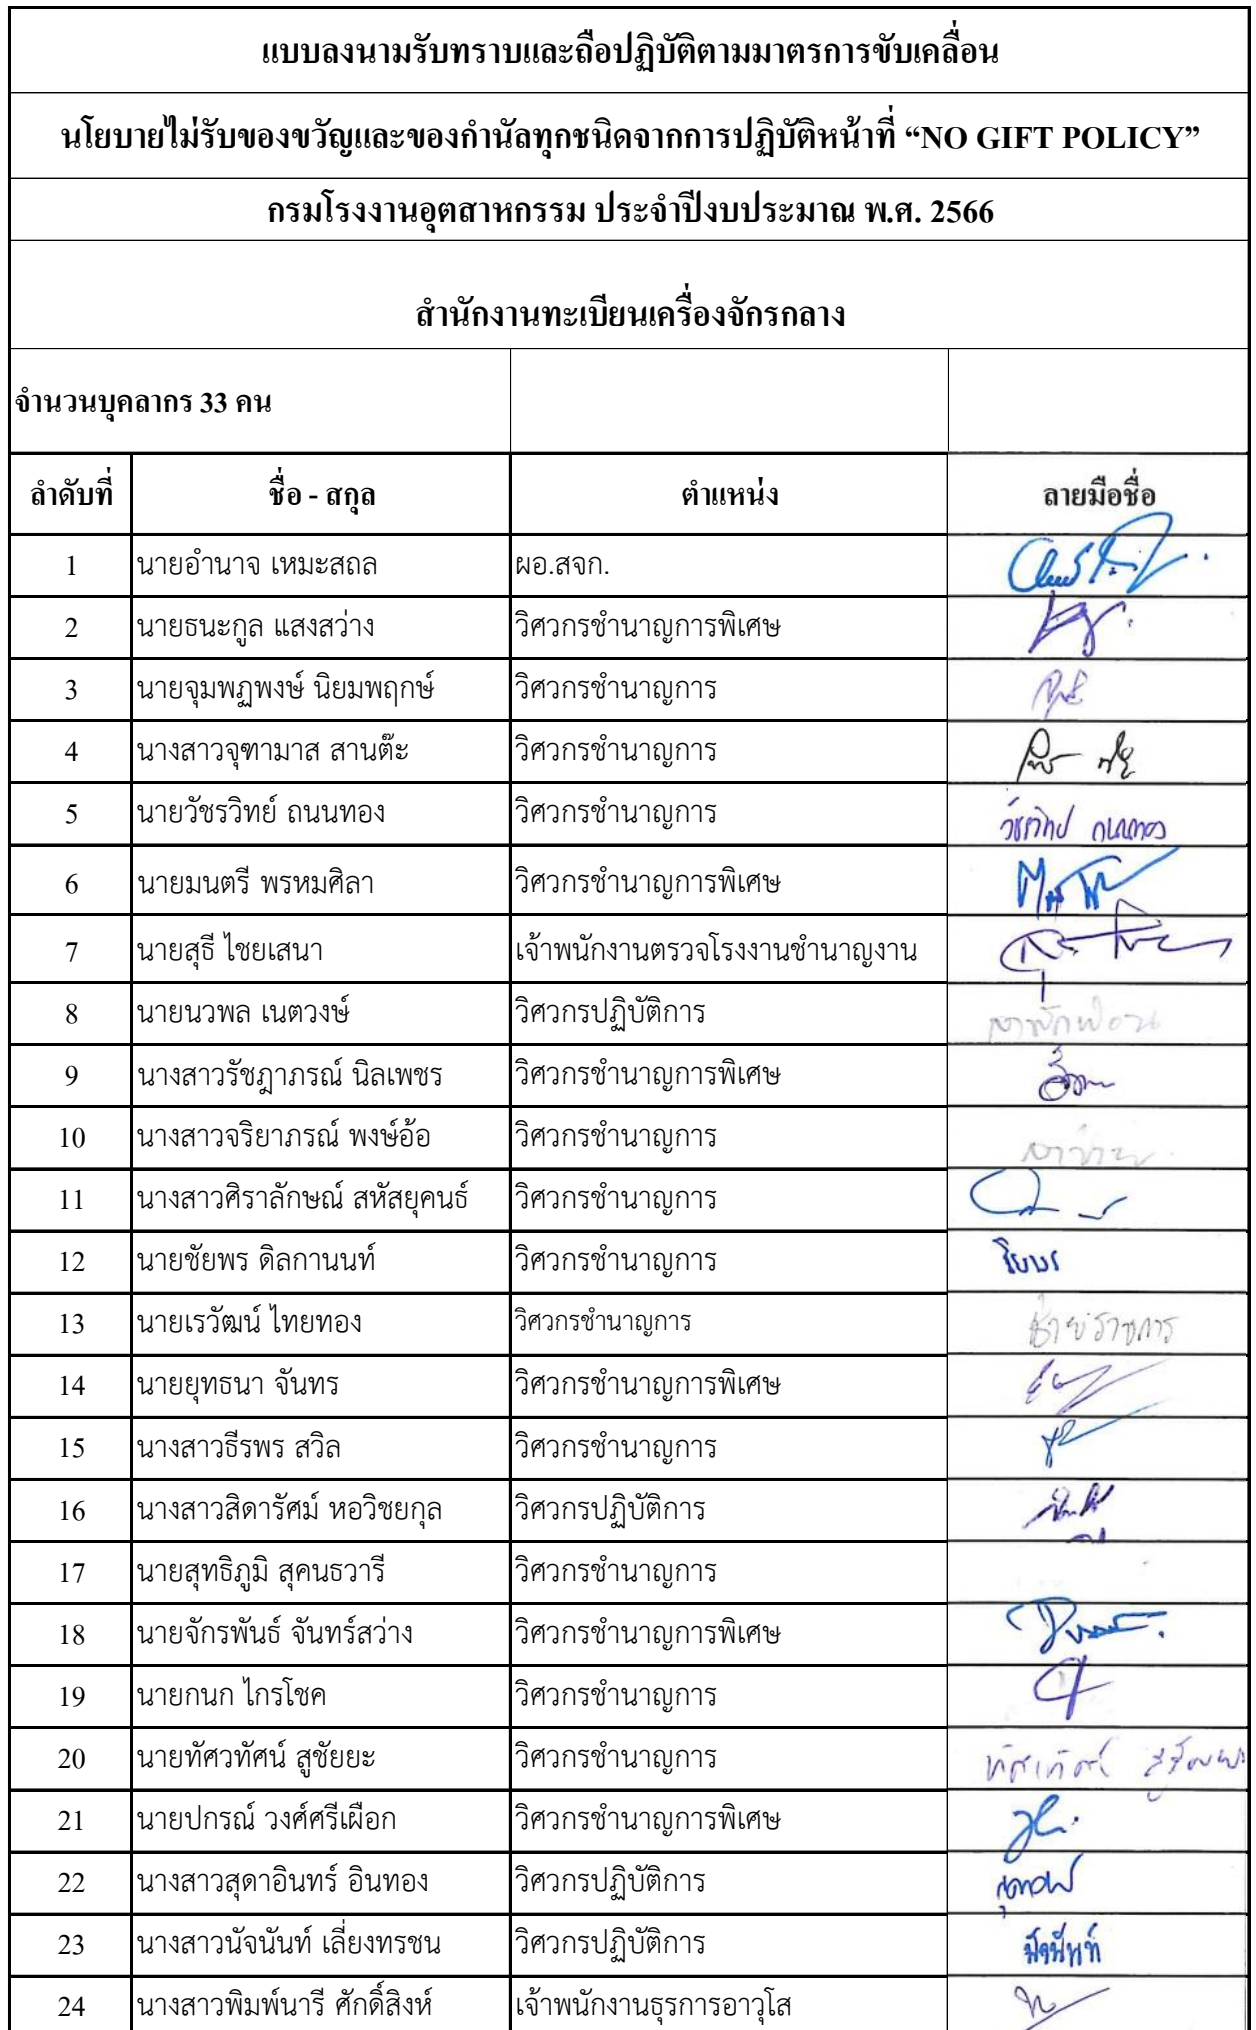 แบบลงนามรับทราบและถือปฏิบัติตามมาตรการขับเคลื่อน
นโยบายไม่รับของขวัญและของกำนัลทุกชนิดจากการปฏิบัติหน้าที่ “NO GIFT POLICY”
กรมโรงงานอุตสาหกรรม ประจำปีงบประมาณ พ.ศ. 2566
สำนักงานทะเบียนเครื่องจักรกลาง
จำนวนบุคลากร 33 คน
ลำดับที่ ชื่อ - สกุล ตำแหน่ง ลายมือชื่อ
1 นายอำนาจ เหมะสถล ผอ.สจก.
2 นายธนะกูล แสงสว่าง วิศวกรชำนาญการพิเศษ
3 นายจุมพฏพงษ์ นิยมพฤกษ์ วิศวกรชำนาญการ
4 นางสาวจุฑามาส สานต๊ะ วิศวกรชำนาญการ
5 นายวัชรวิทย์ ถนนทอง วิศวกรชำนาญการ วัชรวิทย์ ถนนทอง
6 นายมนตรี พรหมศิลา วิศวกรชำนาญการพิเศษ
7 นายสุธี ไชยเสนา เจ้าพนักงานตรวจโรงงานชำนาญงาน
8 นายนวพล เนตวงษ์ วิศวกรปฏิบัติการ ลาพักผ่อน
9 นางสาวรัชฎาภรณ์ นิลเพชร วิศวกรชำนาญการพิเศษ
10 นางสาวจริยาภรณ์ พงษ์อ้อ วิศวกรชำนาญการ
11 นางสาวศิราลักษณ์ สหัสยุคนธ์ วิศวกรชำนาญการ
12 นายชัยพร ดิลกานนท์ วิศวกรชำนาญการ ชัยพร
13 นายเรวัฒน์ ไทยทอง วิศวกรชำนาญการ ช่วยราชการ
14 นายยุทธนา จันทร วิศวกรชำนาญการพิเศษ
15 นางสาวธีรพร สวิล วิศวกรชำนาญการ
16 นางสาวสิดารัศม์ หอวิชยกุล วิศวกรปฏิบัติการ
17 นายสุทธิภูมิ สุคนธวารี วิศวกรชำนาญการ
18 นายจักรพันธ์ จันทร์สว่าง วิศวกรชำนาญการพิเศษ
19 นายกนก ไกรโชค วิศวกรชำนาญการ
20 นายทัศวทัศน์ สูชัยยะ วิศวกรชำนาญการ
21 นายปกรณ์ วงศ์ศรีเผือก วิศวกรชำนาญการพิเศษ
22 นางสาวสุดาอินทร์ อินทอง วิศวกรปฏิบัติการ
23 นางสาวนัจนันท์ เลี่ยงทรชน วิศวกรปฏิบัติการ นัจนันท์
24 นางสาวพิมพ์นารี ศักดิ์สิงห์ เจ้าพนักงานธุรการอาวุโส